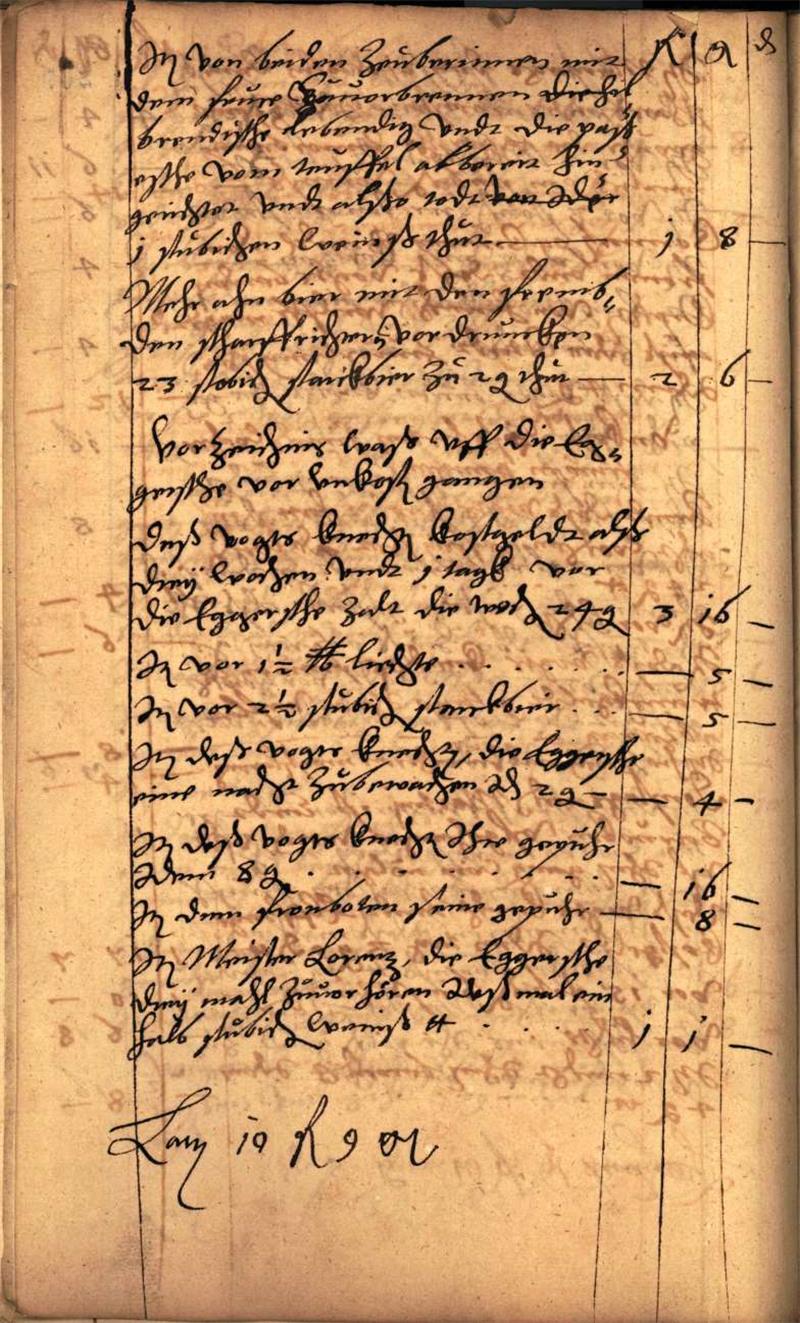 Itz von beiden Zeuberinnen mit fl g d
dem feure zuuorbrennen die hil
brendische lebendig vndt die pasch
esche vom teuffel albereit hin
gerichtet vndt alßo todt von
j stubichen weinß thut — j 8 —
Mehr ahn bier mit den fremb-
den scharffrichtern vordruncken
23 stobich starckbier zu 2 g thut — 2 6 —
Vorzeichnis waß vff die Eg-
gersche vor vnkost gangen
Deß vogts knecht kostgeldt alß
dreÿ wochen vndt j tagk vor
die Eggersche Zalt die woch 24 g 3 16 —
Itz vor 1½ lb lichte . . . — 5 —
Itz vor 2½ stubich starckbier . . — 5 —
Itz deß vogts knecht, die Eggersche
eine nacht Zubewachen 2 g — — 4 —
Itz deß vogts knecht Ihre gepuhr
Idem 8 g . . . — 16 —
Itz dem fronboten seine gepuhr — — 8 —
Itz Meister Lorentz, die Eggersche
dreÿ mahl Zuuorhören mal ein
halb stubich weinß tt . . . j j —
Latz 10 fl 9 gr